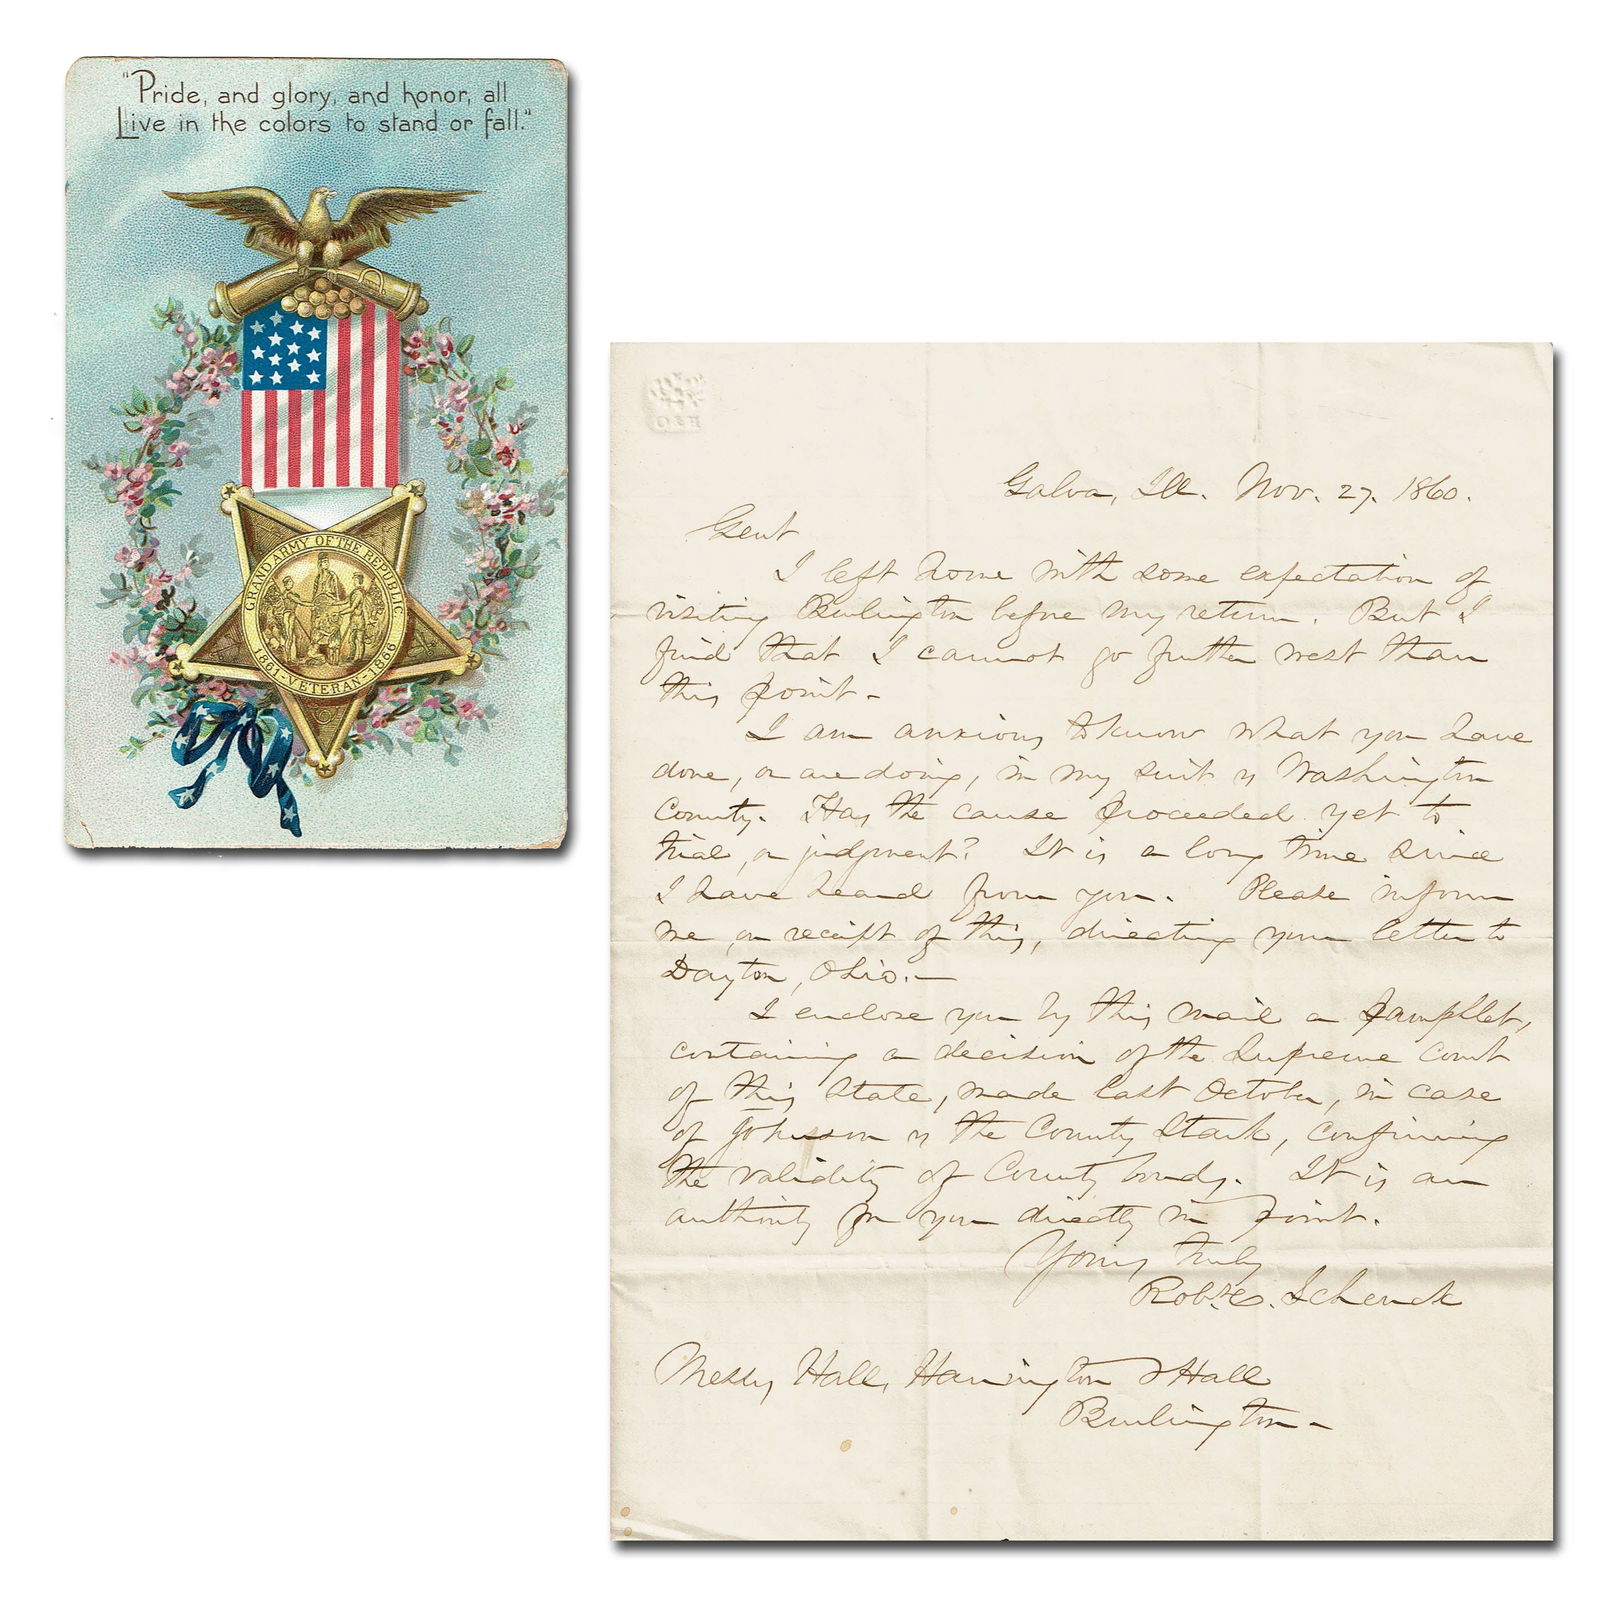 "Pride, and glory, and honor, all
Live in the colors to stand or fall."
GRAND ARMY OF THE REPUBLIC
1861-VETERAN-1866
Galva, Ill. Nov. 27. 1860.
Gent
I left home with some expectation of
visiting Burlington before my return. But I
find that I cannot go further west than
this point-
I am anxious to know what you have
done, or are doing, in my suit vs Washington
County. Has the cause proceeded yet to
trial, or judgment? It is a long time since
I have heard from you. Please inform
me, on receipt of this, directing your letter to
Dayton, Ohio.-
I enclose you by this mail a pamphlet,
containing a decision of the Supreme Court
of this State, made last October, in case
of Johnson vs the County Stark, confirming
the validity of County bonds. It is an
authority for you directly in point.
Yours truly
Robt. C. Schenck
Messrs Hall, Harrington & Hall
Burlington-